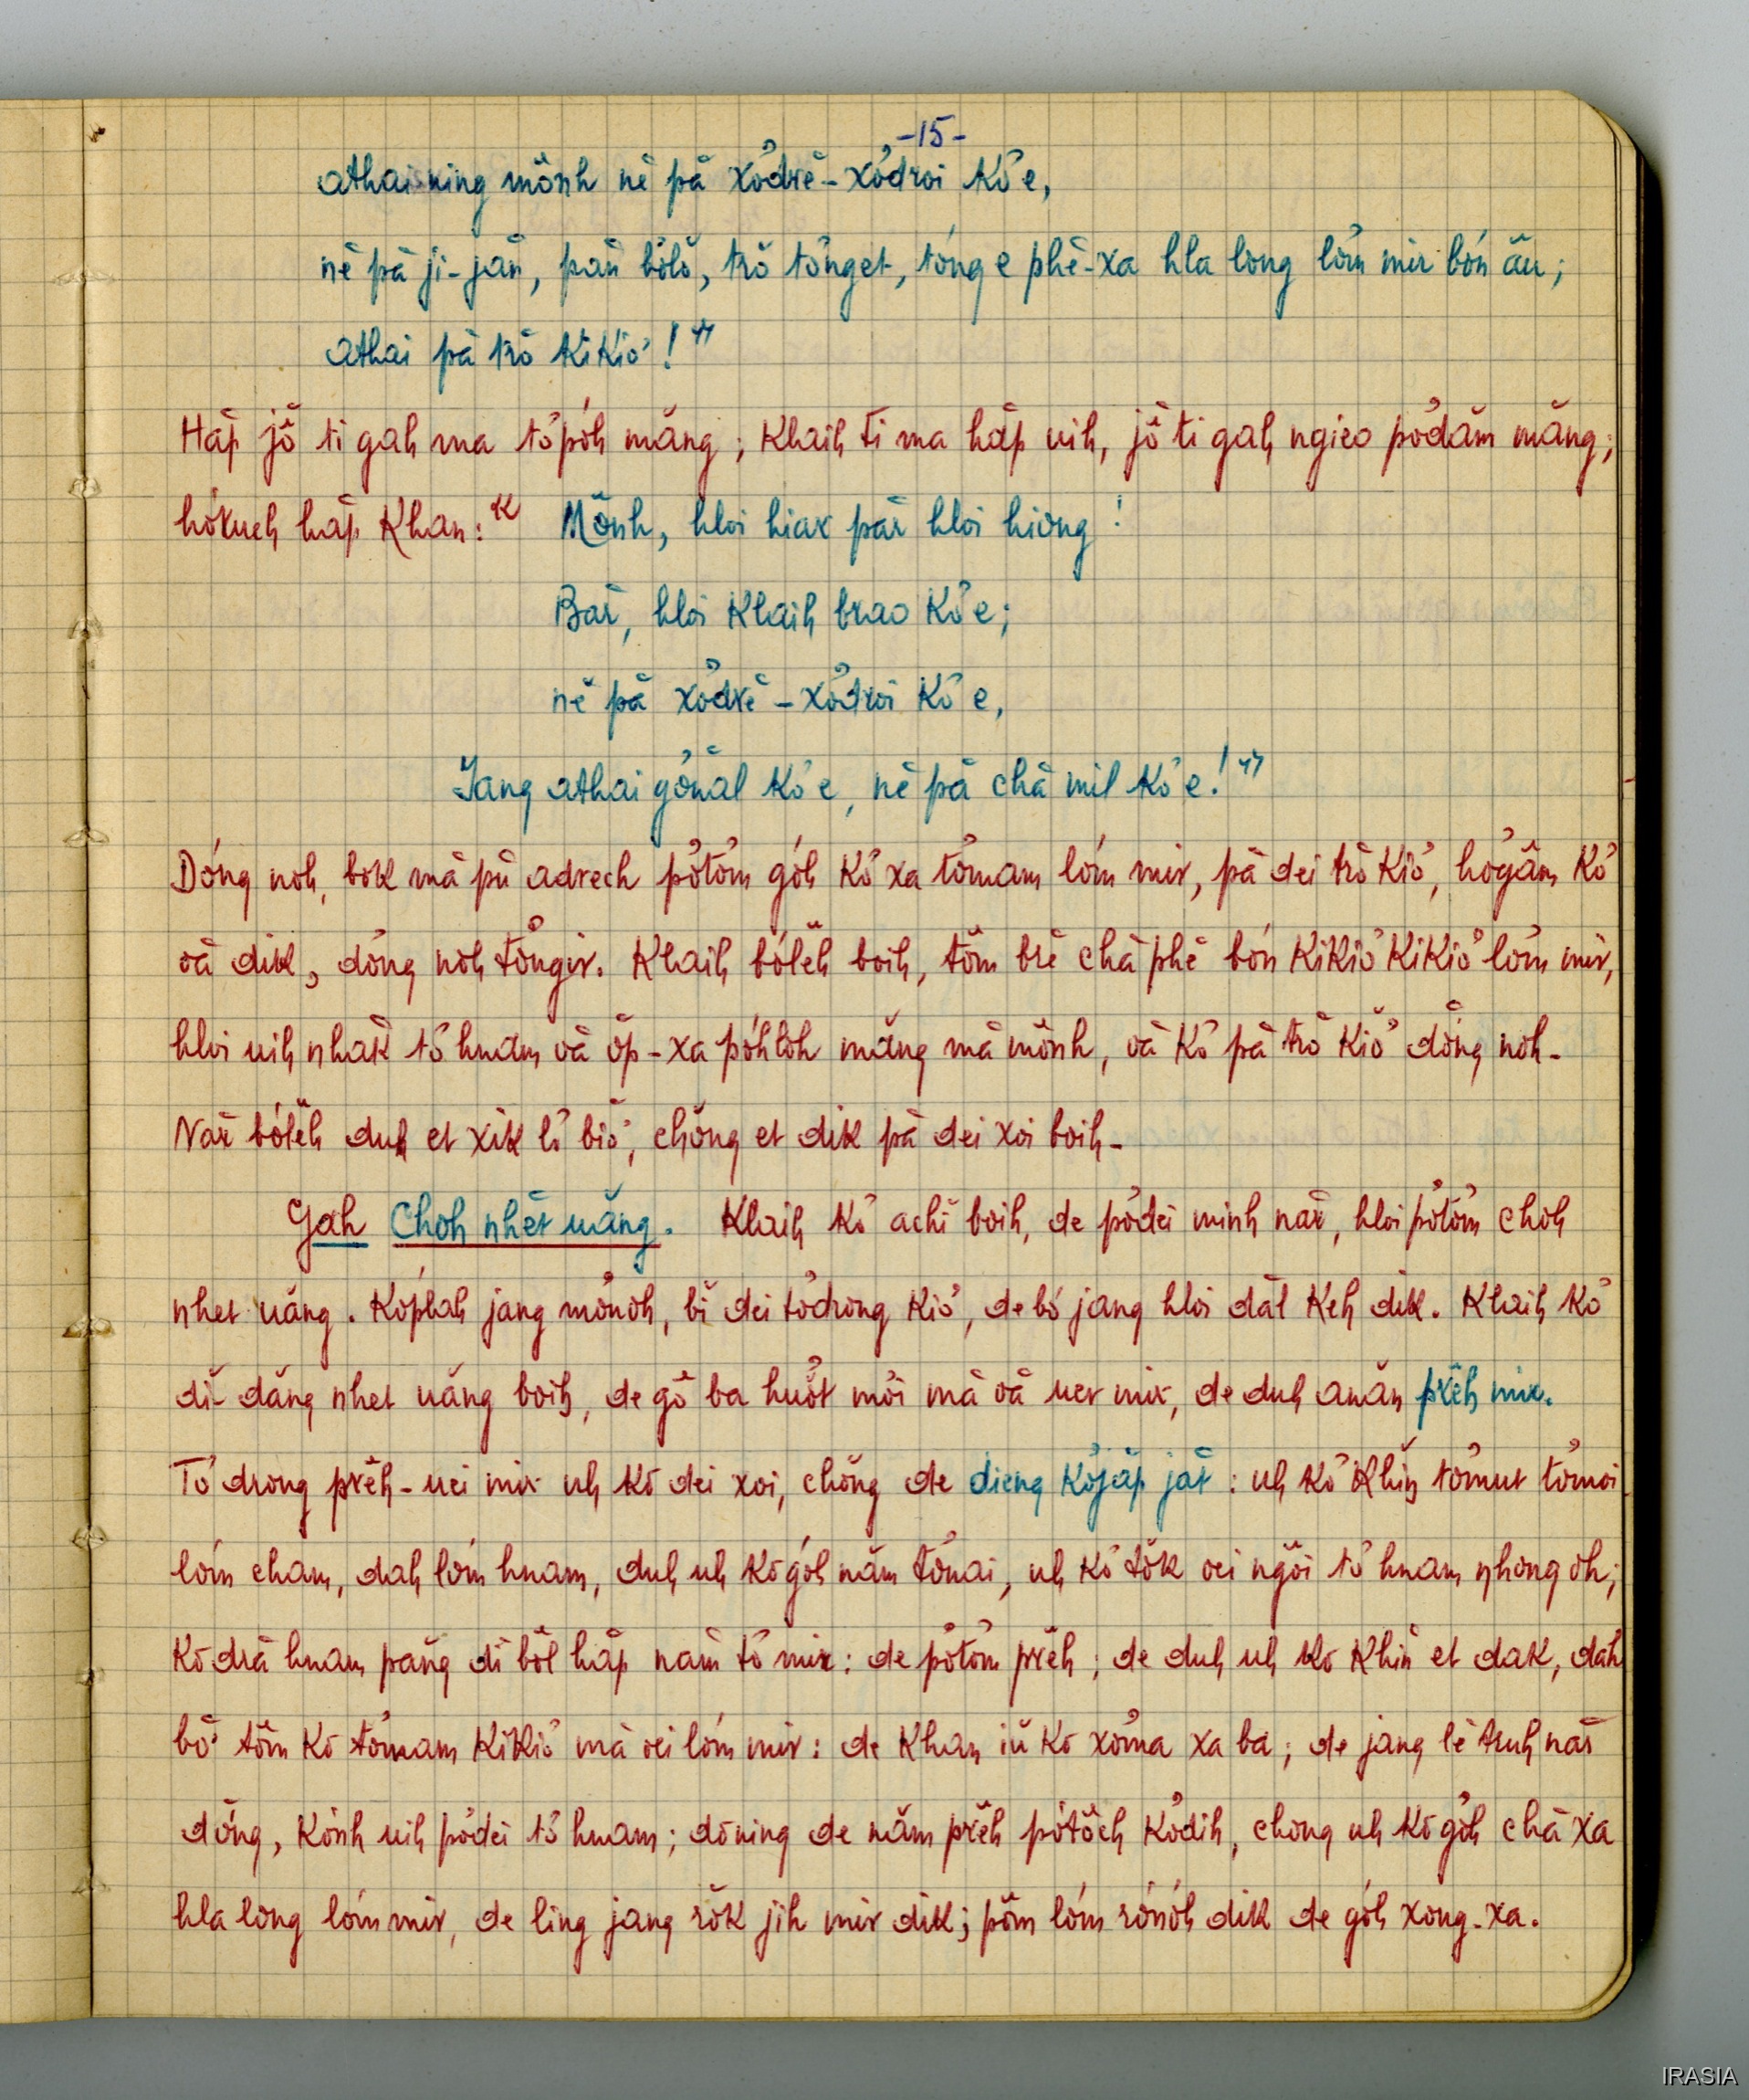 -15-
athai ning mônh nĕ pă xơ̆drĕ-xơ̆droi kơ̆ e,
nĕ pă ji-jăn, păn bơ̆lŏ, trŏ tơnget, tơng e phĕ-xa hla long lơ̆m mir bơ̆n ău;
athai pă trŏ kikiơ̆!"
Hăp jŏ ti gah ma tơ̆pơ̆h măng; klaih ti ma hăp uih, jŏ ti gah ngieo pơ̆dăm măng;
hơ̆kueh hăp khan: " Mônh, hloi hiar păr hloi hiong!
Bar, hloi klaih brao kơ̆ e;
nĕ pă xơ̆drĕ-xơ̆droi kơ̆ e,
Jang athai gơ̆năl kơ̆ e, nĕ pă chă mil kơ̆ e!"
Dơ̆ng noh, bok mă pŭ adrech pơ̆tơm gơ̆h kơ̆ xa tơ̆mam lơ̆m mir, pă dei trŏ kiơ̆, hơ̆găm kơ̆
oă dik, dơ̆ng noh tơ̆ngir. Klaih bơ̆lĕh boih, tôm brĕ chă phĕ bơ̆n kikiơ̆ kikiơ̆ lơ̆m mir,
hloi uih nhăk tơ̆ hnam oă ŏp-xa pơ̆hlŏh măng mă mônh, oă kơ̆ pă trŏ kiơ̆ dơ̆ng noh-
Năr bơ̆lĕh duh et xik lơ̆ biơ̆, chŏng et dik pă dei xoi boih-
Gah Choh nhĕt uăng. Klaih kơ̆ achĭ boih, de pơ̆dei minh năr, hloi pơ̆tơm choh
nhet uăng. Kơ̆plah jang mơ̆nŏh, bĭ dei tơ̆drong kiơ̆, de bơ̆ jang hloi dăl keh dik. Klaih kơ̆
dĭ-dăng nhet uăng boih, de gô ba huơ̆t mơi mă oă uer mir, de duh anăn prĕh mir.
Tơ̆ drong prĕh-uei mir uh kơ̆ dei xoi, chŏng de dieng kơ̆jăp jăt: uh kơ̆ khĭn tơ̆mut tơ̆moi
lơ̆m cham, dah lơ̆m hnam, duh uh kơ̆ gơ̆h năm tơ̆nai, uh kơ̆ tŏk oei ngôi tơ̆ hnam nhong oh;
kơ̆dră hnam păng dĭ bôl hăp năm tơ̆ mir: de pơ̆tơm prĕh; de duh uh kơ̆ khĭn et dak, dah
bơ̆ tôm kơ̆ tơ̆mam kikiơ̆ mă oei lơ̆m mir: de khan iŭ kơ̆ xơ̆ma xa ba; de jang lĕ truh năr
dơ̆ng, kơ̆nh uih pơ̆dei tơ̆ hnam; dơ̆ning de năm prĕh pơ̆tŏch kơ̆dih, chong uh kơ̆ gơ̆h chă xa
hla long lơ̆m mir, de ling jang rŏk jih mir dik; pôm lơ̆m rơ̆nơ̆h dik de gơ̆h xong-xa.
IRASIA